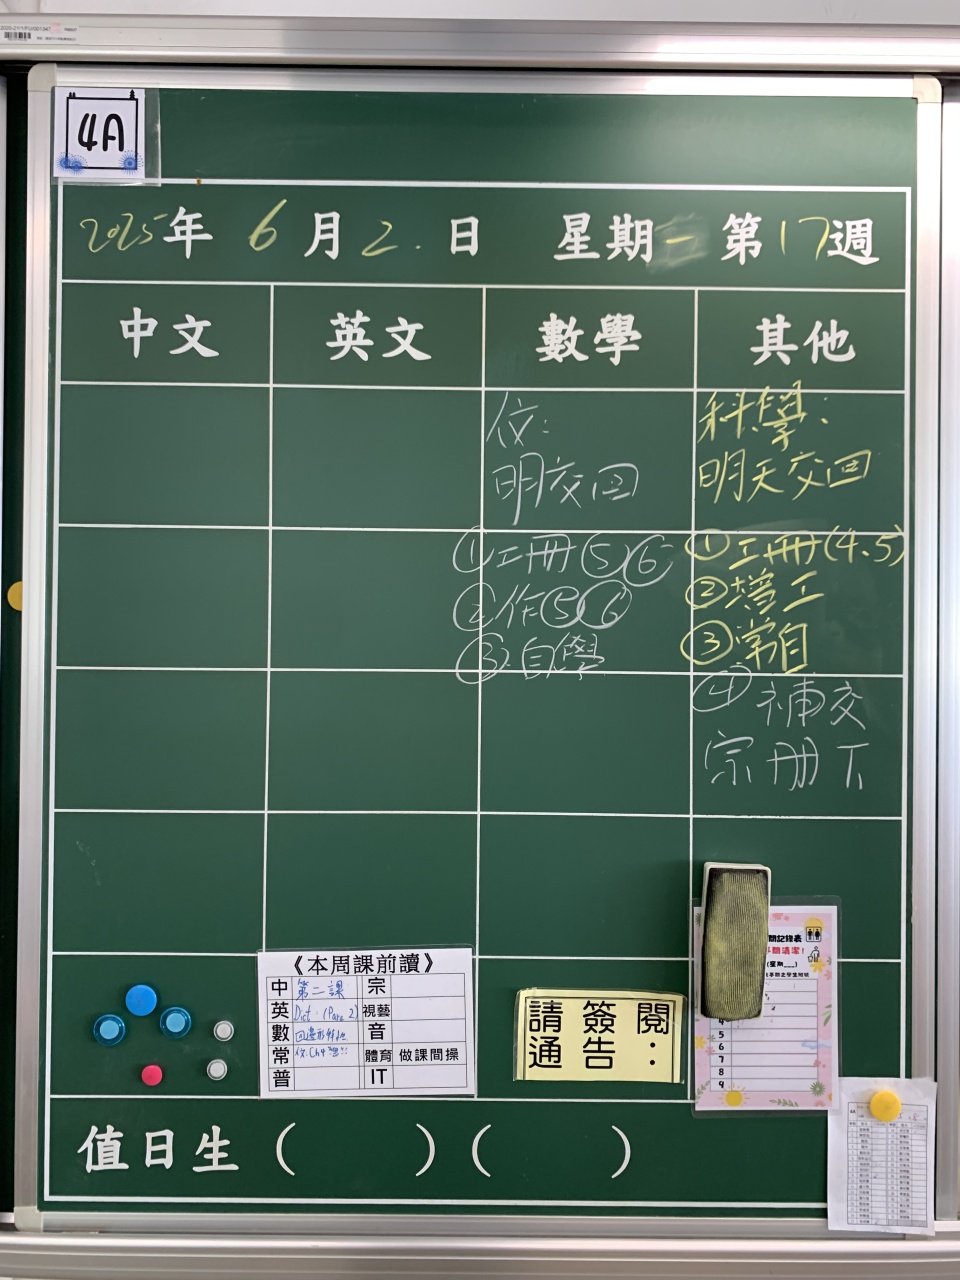 4A
2025年 6月 2.日 星期一 第17週
中文 英文 數學 其他
明交回
①工冊⑤⑥
②作⑤⑥
③自學
科學:
明天交回
①工冊(4.5)
②增工
③常自
④補交
宗冊下
《本周課前讀》
中 第二課 宗
英 Dict. (Para 2) 視藝
數 四邊形 音
常 體育 做課間操
普 IT
請簽閱
通告:
5
6
7
8
9
值日生 ( ) ( )